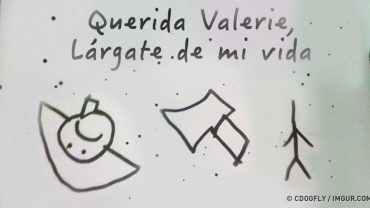 Querida Valerie,
Lárgate de mi vida
© CDOGFLY / IMGUR.COM